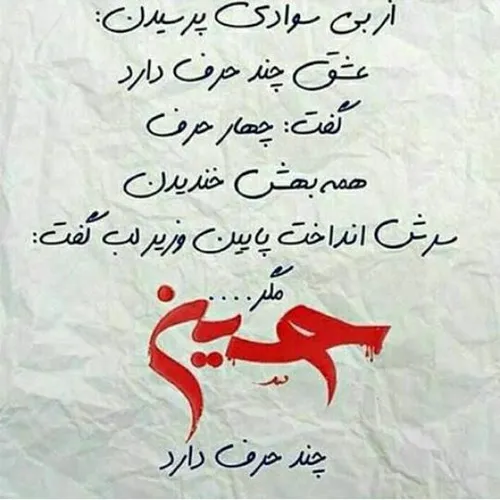 از بی سوادی پرسیدن:
عشق چند حرف دارد
گفت: چهار حرف
همه بهش خندیدن
سرش انداخت پایین وزیر لب گفت:
مگر....
حسین
چند حرف دارد